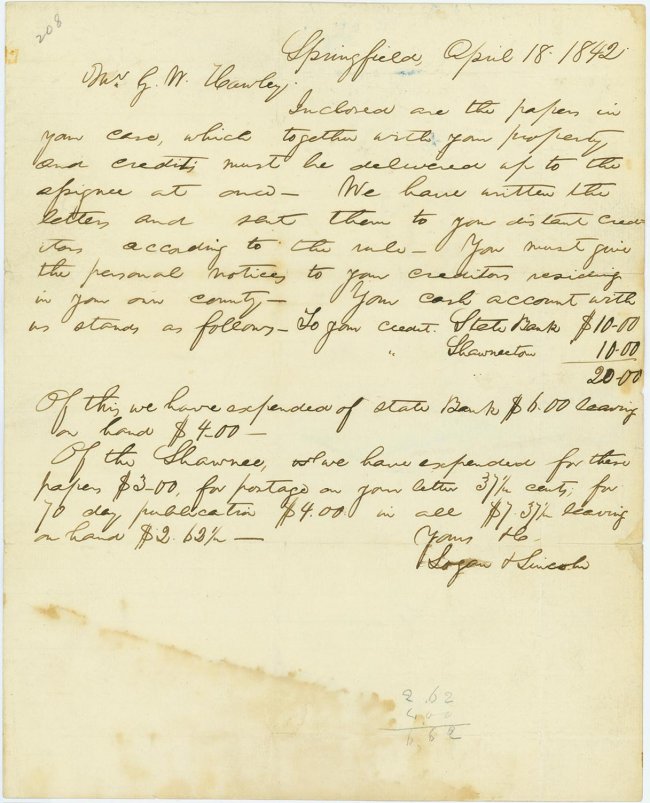 208
Springfield, April 18. 1842
Mr G. W. Hawley.
Inclosed are the papers in
your case, which together with your property
and credits must be delivered up to the
assignee at once— We have written the
letters and sent them to your distant cred-
itors according to the rule— You must give
the personal notices to your creditors residing
in your own county— Your cash account with
us stands as follows— To your credit. State Bank $10-00
" Shawneetown 10.00
20-00
Of this we have expended of state Bank $6.00 leaving
on hand $4-00—
Of the Shawnee, we have expended for these
papers $3-00, for postage on your letter 37½ cents, for
70 day publication $4.00 in all $7.37½ leaving
on hand $2.62½—
Yours &c.
Logan & Lincoln
2.62
4.00
6.62